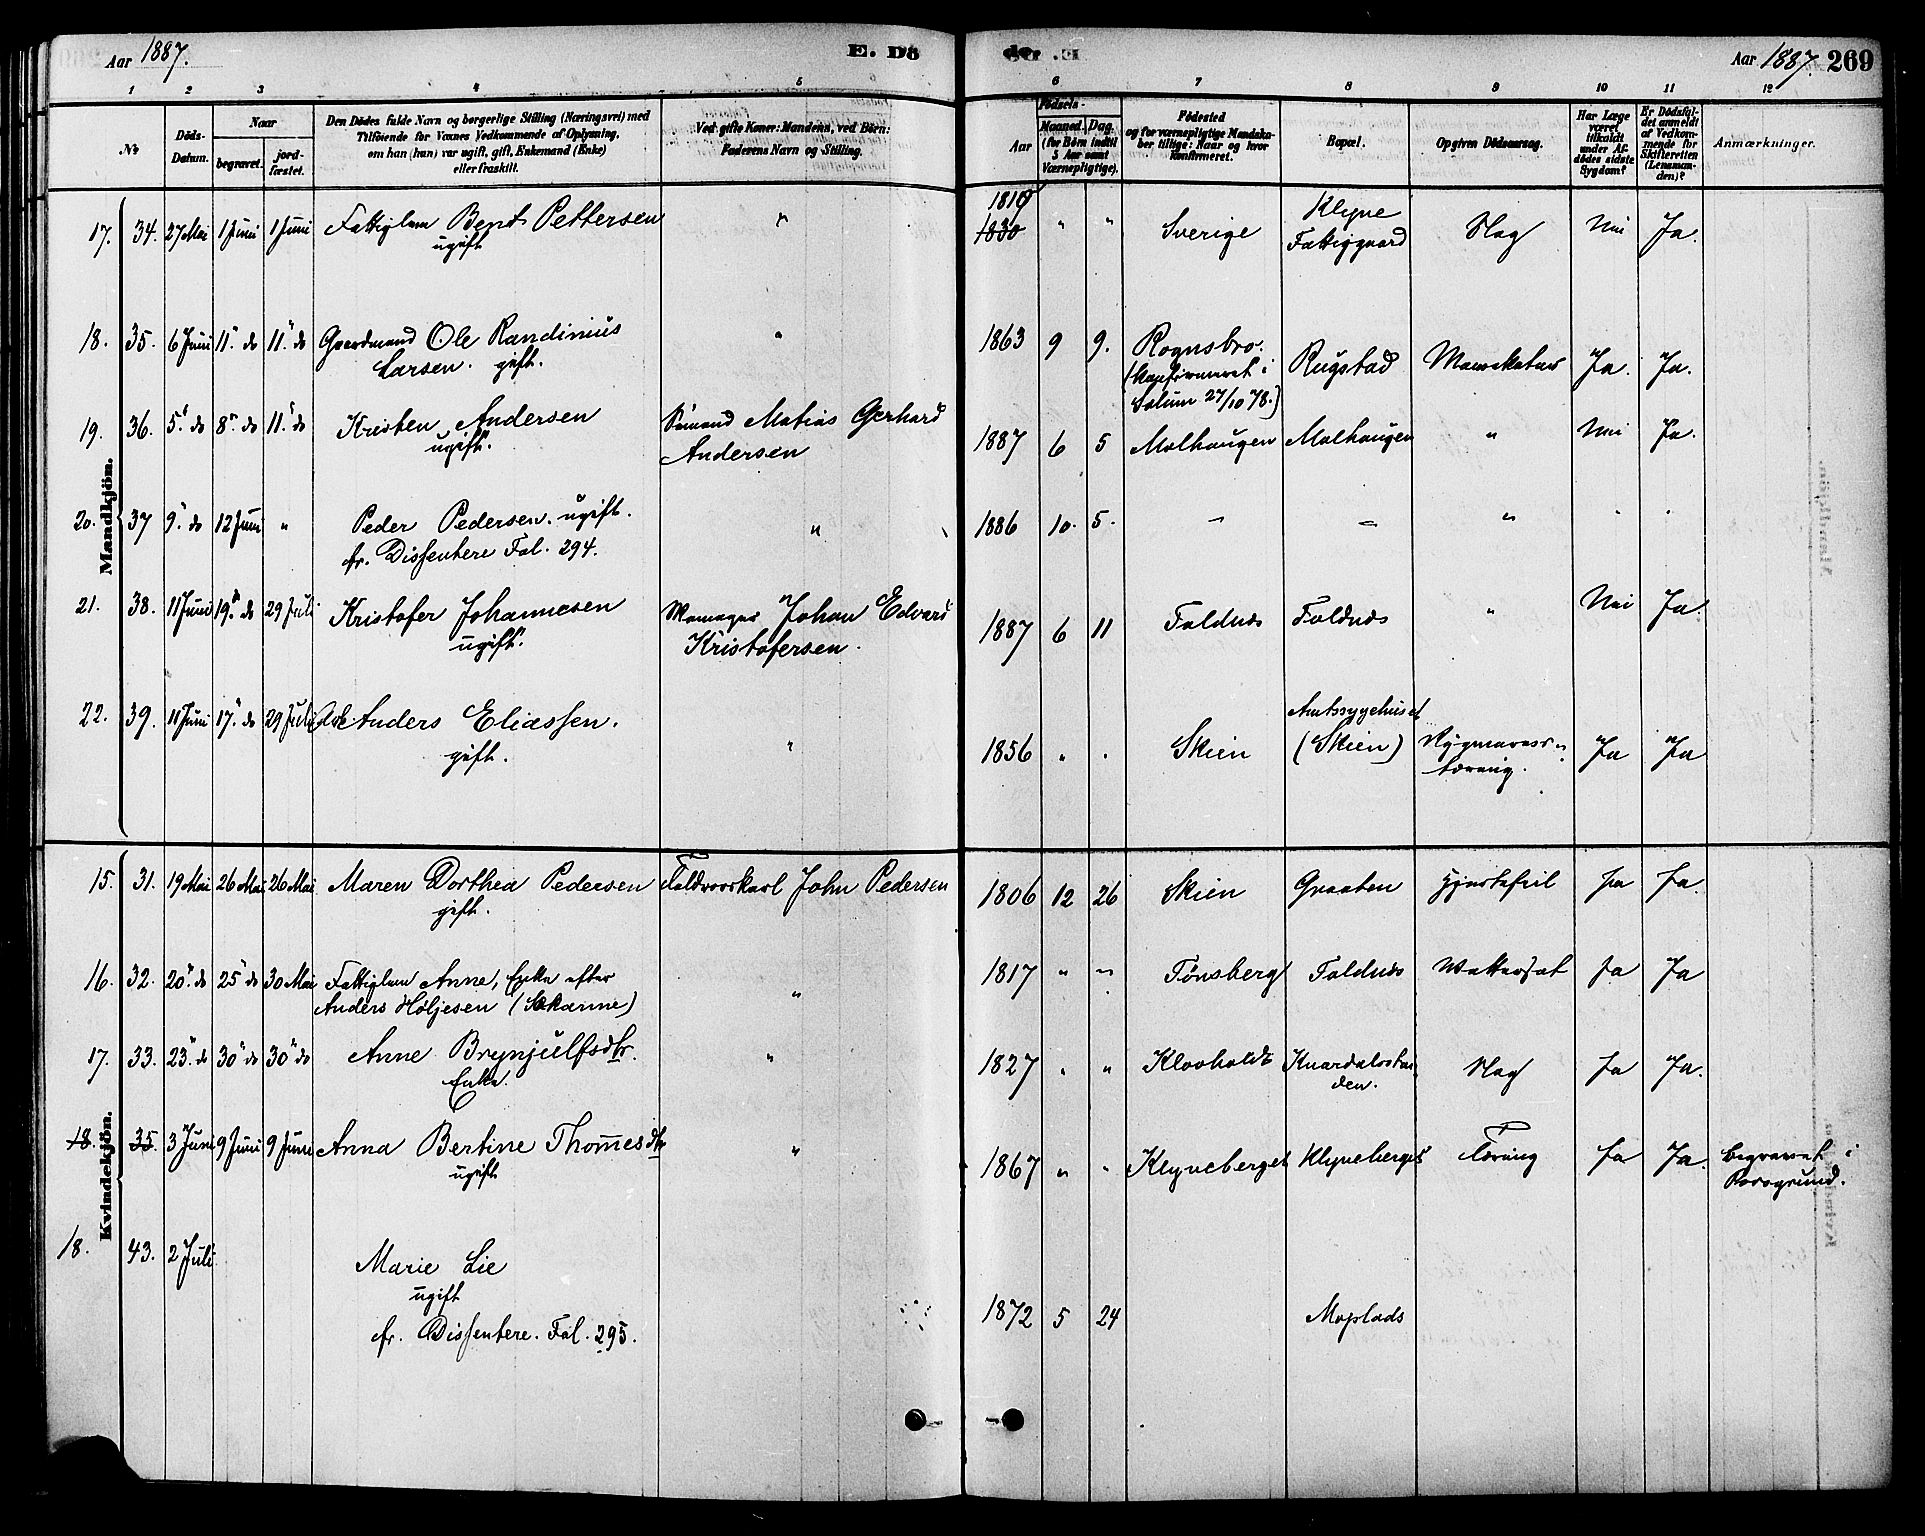 Aar 1887.
E. Dö
Aar 1887. 269
1 2 3 4 5 6 7 8 9 10 11 12
No
Döds-Datum.
Naar
begravet.
jord-fæstet.
Den Dödes fulde Navn og borgerlige Stilling (Næringsvei) med
Tilföiende for Voxnes Vedkommende af Oplysning,
om han (hun) var ugift, gift, Enkemand (Enke)
eller fraskilt.
Ved gifte Koner: Mandens, ved Börn:
Faderens Navn og Stilling.
Födsels-
Aar
Maaned. Dag.
(for Börn indtil
5 Aar samt
Værnepligtige).
Födested
og for værnepligtige Mandskaber tillige: Naar og hvor
konfirmeret.
Bopæl.
Opgiven Dödsaarsag.
Har Læge
været
tilkaldt
under Afdödes sidste
Sygdom?
Er Dödsfaldet anmeldt
af Vedkommende for
Skifteretten
(Lensmanden)?
Anmærkninger.
Mandkjön.
17. 34. 27 Mai 1 Juni 1 Juni Fattiglem Bent Pettersen " 1819 " " Sverige Klyve Slag Nei Ja.
ugift 1830 Fattiggaard
18. 35. 6 Juni 11" do 11" do Gaardmand Ole Randinius " 1863 9 9. Rognsbro. Rugstad Ja. Ja.
Larsen. gift. (konfirmeret i
Solum 27/10 78.)
19. 36. 5" do 8" do 11" do Kristen Andersen Sømand Matias Gerhard 1887 6 5 Molhaugen Molhaugen " Nei Ja.
ugift. Andersen
20. 37 9" do 12 Juni " Peder Pedersen. ugift. " 1886 10. 5. " " "
fr. Dissentere Fol. 294.
21. 38. 11 Juni 19" do 29 Juli Kristofer Johannesen Johan Edvard 1887 6 11 Foldnes Foldnes " Nei Ja.
ugift. Kristofersen.
22. 39. 11 Juni 17" do 29 Juli Anders Eliassen. " 1856 " " Skien Amtssygehuset Ja Ja
gift. (Skien) tæring.
Kvindekjön.
15. 31. 19 Mai 26 Mai 26 Mai Maren Dorthea Pedersen John Pedersen 1806 12 26 Skien Graaten Hjertefeil Ja Ja.
gift.
16. 32. 20" do 25" do 30 Mai Fattiglem Anne, Enke efter " 1817 " " Tønsberg Foldnes Wattersot Ja Ja
Anders Høljesen (Skarme)
17. 33. 23" do 30" do 30" do Anne Brynjulfsdtr. " 1827 " " Klovholdt Slag Ja Ja.
Enke. den.
18. 35. 3 Juni 9 Juni 9 Juni Anna Bertine Thomesdtr " 1867 " " Klyveberget Klyveberget Tæring Ja Ja. begravet i
ugift Porsgrund.
18. 43. 2 Juli Marie Lie
ugift 1872 5 24 Moplads
fr. Dissentere. Fol. 295.